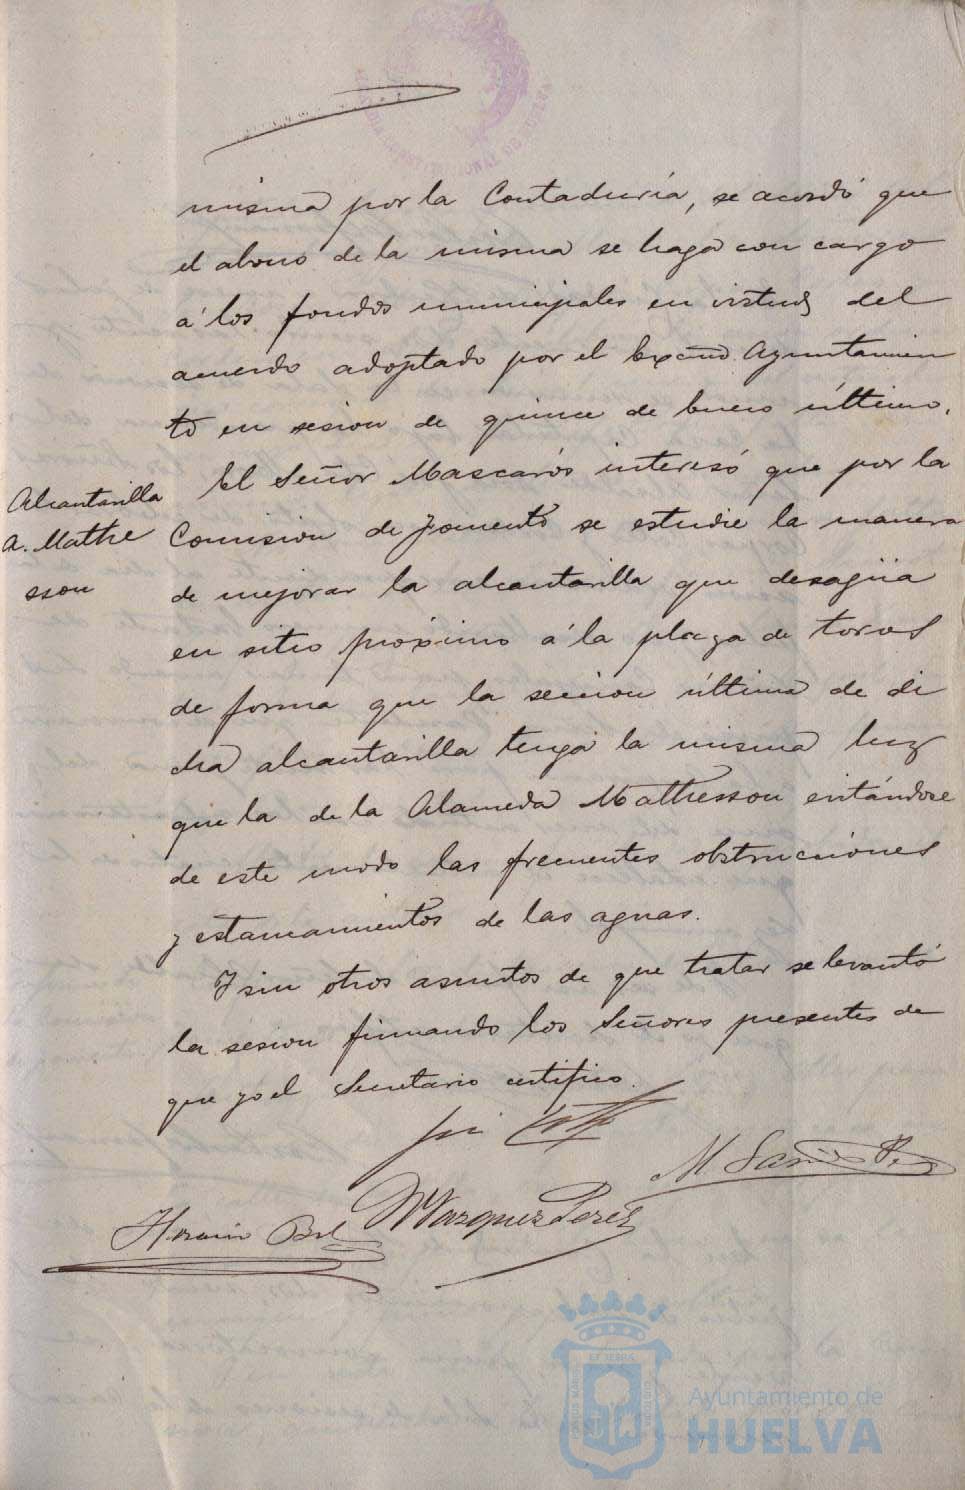 misma por la Contaduría, se acordó que
el abono de la misma se haga con cargo
á los fondos municipales en virtud del
acuerdo adoptado por el Excmo. Ayuntamien
to en sesion de quince de Enero último.
Alcantarilla
A. Mathe
sson
El Señor Mascarós interesó que por la
Comision de Fomento se estudie la manera
de mejorar la alcantarilla que desagüa
en sitio próximo á la plaza de toros
de forma que la seccion última de di
cha alcantarilla tenga la misma luz
que la de la Alameda Mathesson evitándose
de este modo las frecuentes obstrucciones
y estancamientos de las aguas.
Y sin otros asuntos de que tratar se levantó
la sesion firmando los Señores presentes de
que yo el Secretario certifico.
M
Vazquez Perez
Horacio Bel
Ayuntamiento de
HUELVA